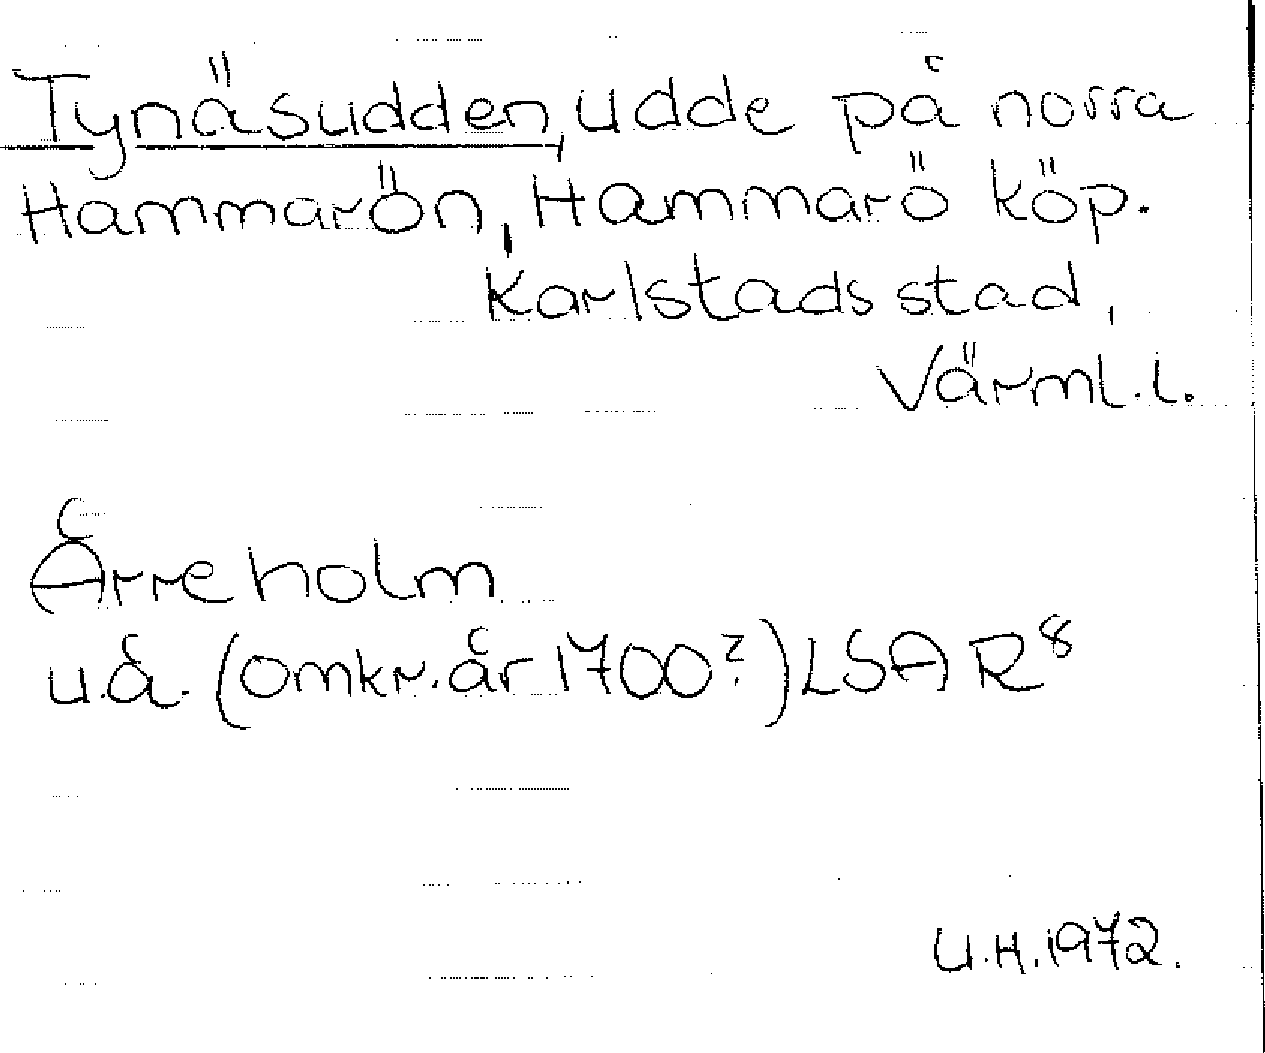 Tynäsudden, udde på norra
Hammarön, Hammarö köp.
Karlstads stad,
Värml. l.
Årreholm
u.å. (omkr. år 1700?) LSA R8
U.H. 1972.